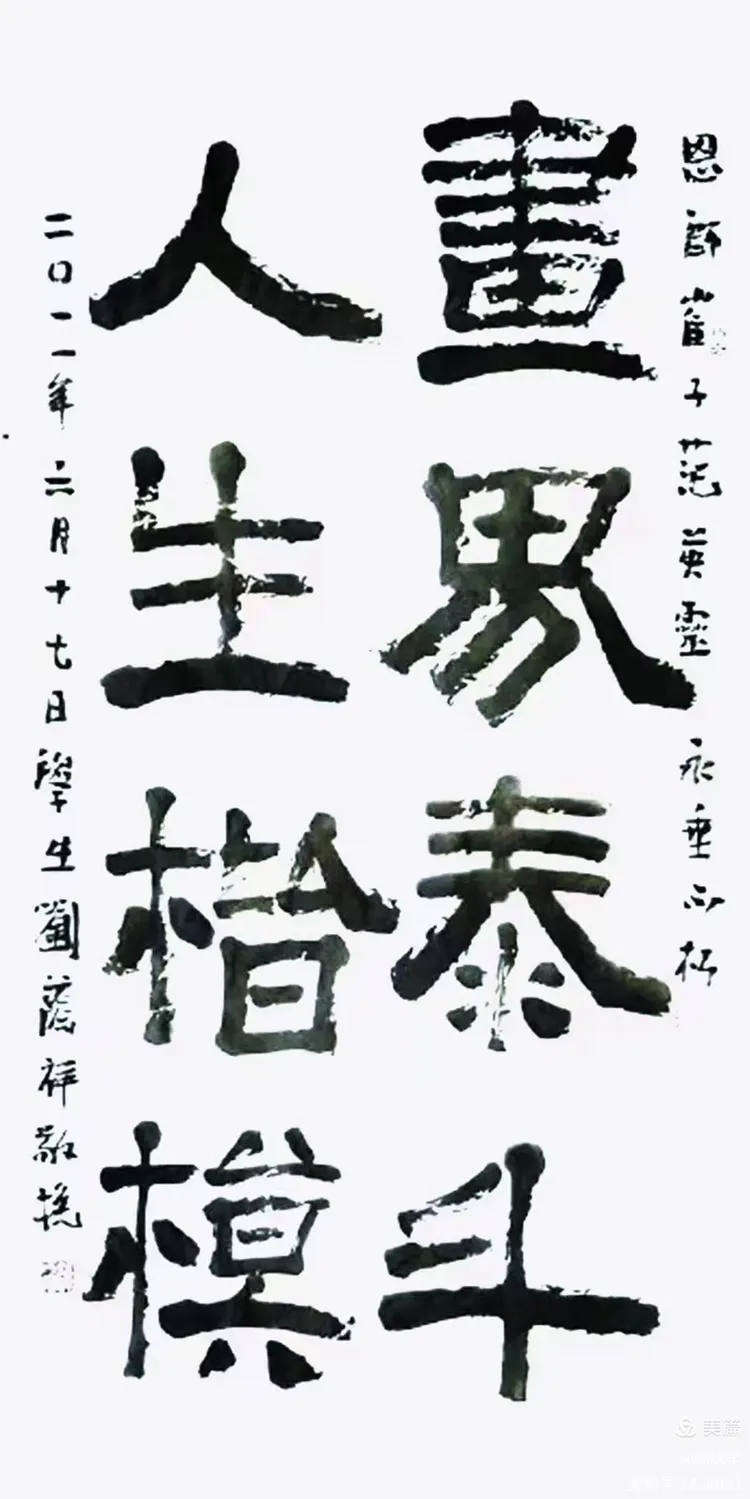 恩師崔子范英靈 永垂不朽
畫界泰斗
人生楷模
二〇一一年六月十七日學生劉蔭祥敬挽
美篇